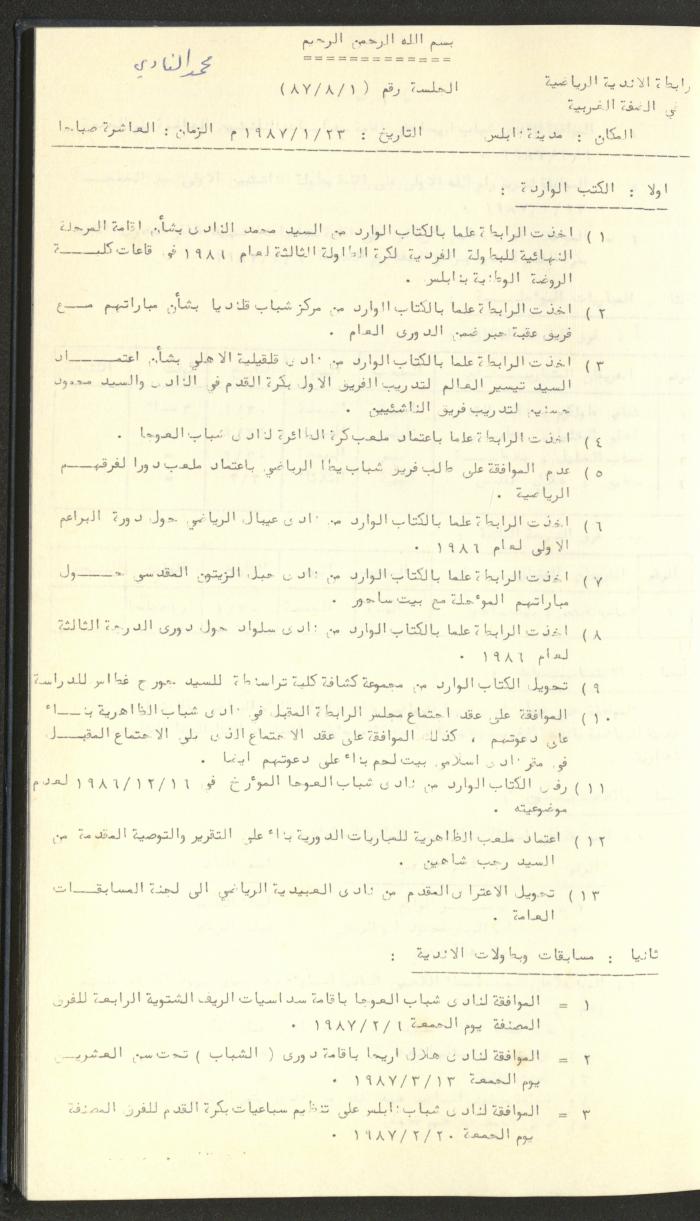 بسم الله الرحمن الرحيم
محمد النادي
رابطة الاندية الرياضية
الجلسة رقم (٨٧/٨/١)
في الضفة الغربية
المكان : مدينة نابلس التاريخ : ١٩٨٧/١/٢٣ م الزمان : العاشرة صباحا
اولا : الكتب الواردة :
١ ) اخذت الرابطة علما بالكتاب الوارد من السيد محمد النادى بشأن اقامة المرحلة
النهائية للبطولة الفردية لكرة الطاولة الثالثة لعام ١٩٨٦ في قاعات كليـــة
الروضة الوطنية بنابلس .
٢ ) اخذت الرابطة علما بالكتاب الوارد من مركز شباب قلنديا بشأن مباراتهم مـــع
فريق عقبة جبر ضمن الدورى العام .
٣ ) اخذت الرابطة علما بالكتاب الوارد من نادى قلقيلية الاهلي بشأن اعتمـــــاد
السيد تيسير العالم لتدريب الفريق الاول بكرة القدم في النادى والسيد محمود
حسنين لتدريب فريق الناشئيين .
٤ ) اخذت الرابطة علما باعتماد ملعب كرة الطائرة لنادى شباب العوجا .
٥ ) عدم الموافقة على طلب فريق شباب يطا الرياضي باعتماد ملعب دورا لفرقهـــم
الرياضية .
٦ ) اخذت الرابطة علما بالكتاب الوارد من نادى عيبال الرياضي حول دورة البراعم
الاولى لعام ١٩٨٦ .
٧ ) اخذت الرابطة علما بالكتاب الوارد من نادى جبل الزيتون المقدسي حــــول
مباراتهم المؤجلة مع بيت ساحور .
٨ ) اخذت الرابطة علما بالكتاب الوارد من نادى سلواد حول دورى الدرجة الثالثة
لعام ١٩٨٦ .
٩ ) تحويل الكتاب الوارد من مجموعة كشافة كلية تراسنطة للسيد جورج غطاس للدراسة
١٠ ) الموافقة على عقد اجتماع مجلس الرابطة المقبل في نادى شباب الظاهرية بنـــاء
على دعوتهم ، كذلك الموافقة على عقد الاجتماع الذى يلي الاجتماع المقبـــل
في مقر نادى اسلامي بيت لحم بناء على دعوتهم ايضا .
١١ ) رفض الكتاب الوارد من نادى شباب العوجا المؤرخ في ١٩٨٦/١٢/١٦ لعدم
موضوعيته .
١٢ ) اعتماد ملعب الظاهرية للمباريات الدورية بناء على التقرير والتوصية المقدمة من
السيد رجب شاهين .
١٣ ) تحويل الاعتراض المقدم من نادى العبيدية الرياضي الى لجنة المسابقـــات
العامة .
ثانيا : مسابقات وبطولات الاندية :
١ = الموافقة لنادى شباب العوجا باقامة سداسيات الريف الشتوية الرابعة للفرق
المصنفة يوم الجمعة ١٩٨٧/٢/٦ .
٢ = الموافقة لنادى هلال اريحا باقامة دورى ( الشباب ) تحت سن العشريـــن
يوم الجمعة ١٩٨٧/٣/١٣ .
٣ = الموافقة لنادى شباب نابلس على تنظيم سباعيات بكرة القدم للفرق المصنفة
يوم الجمعة ١٩٨٧/٢/٢٠ .